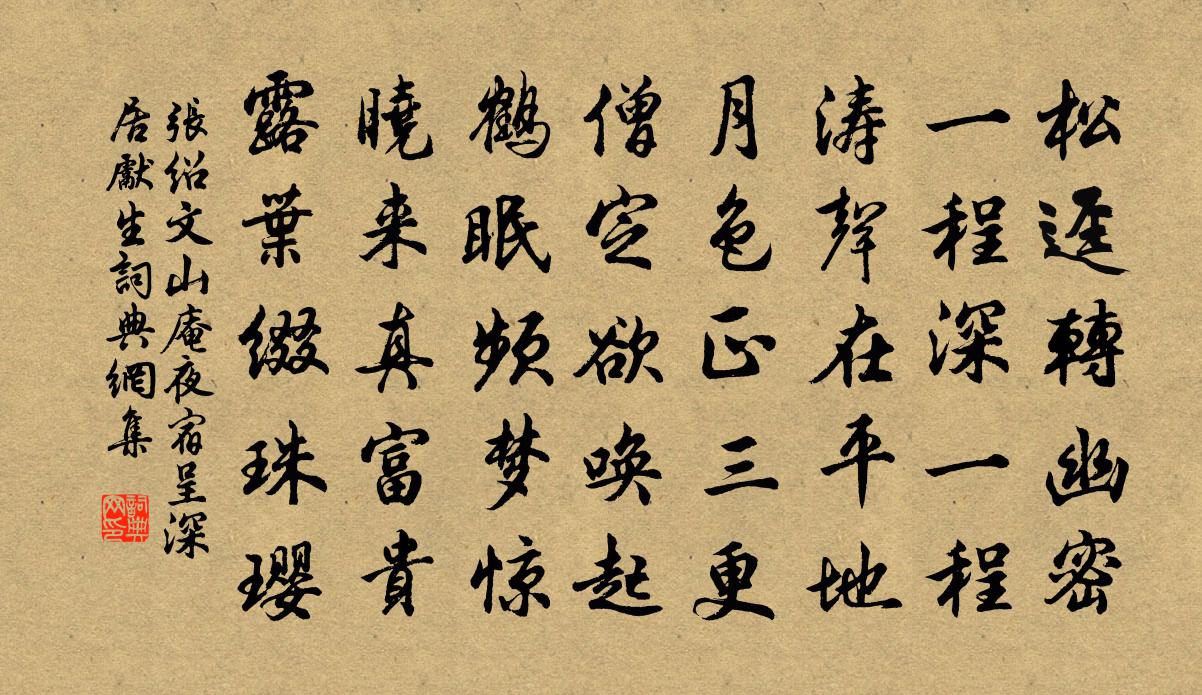 松逕轉幽密
一程深一程
涛聲在平地
月色正三更
僧定欲唤起
鶴眠频梦惊
曉来真富貴
露葉缀珠璎
張绍文山庵夜宿呈深
居獻生詞典網集
詞典網印